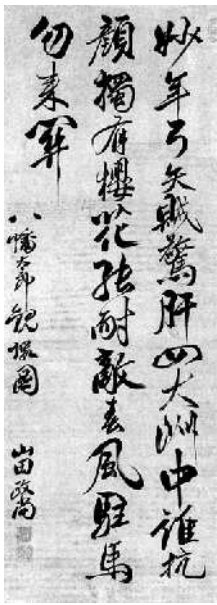 妙年弓矢賊驚肝四大洲中誰抗
顔獨有櫻花能耐敵春風駐馬
勿来関
八幡太郎観櫻図
山田政尚